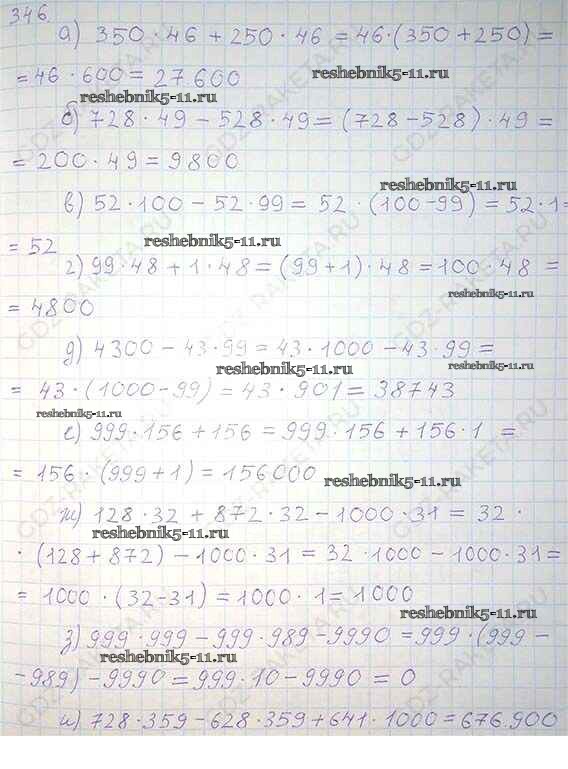 346.
а) 350 · 46 + 250 · 46 = 46 · (350 + 250) =
= 46 · 600 = 27.600
reshebnik5-11.ru
reshebnik5-11.ru
б) 728 · 49 - 528 · 49 = (728 - 528) · 49 =
= 200 · 49 = 9800
reshebnik5-11.ru
в) 52 · 100 - 52 · 99 = 52 · (100 - 99) = 52 · 1 =
= 52
reshebnik5-11.ru
г) 99 · 48 + 1 · 48 = (99 + 1) · 48 = 100 · 48 =
reshebnik5-11.ru
= 4800
д) 4300 - 43 · 99 = 43 · 1000 - 43 · 99 =
reshebnik5-11.ru
= 43 · (1000 - 99) = 43 · 901 = 38743
reshebnik5-11.ru
е) 999 · 156 + 156 = 999 · 156 + 156 · 1 =
= 156 · (999 + 1) = 156000
reshebnik5-11.ru
ж) 128 · 32 + 872 · 32 - 1000 · 31 = 32 ·
reshebnik5-11.ru
· (128 + 872) - 1000 · 31 = 32 · 1000 - 1000 · 31 =
= 1000 · (32 - 31) = 1000 · 1 = 1000
reshebnik5-11.ru
з) 999 · 999 - 999 · 989 - 9990 = 999 · (999 -
reshebnik5-11.ru
- 989) - 9990 = 999 · 10 - 9990 = 0
и) 728 · 359 - 628 · 359 + 641 · 1000 = 676.900
GDZ-RAKETA.RU